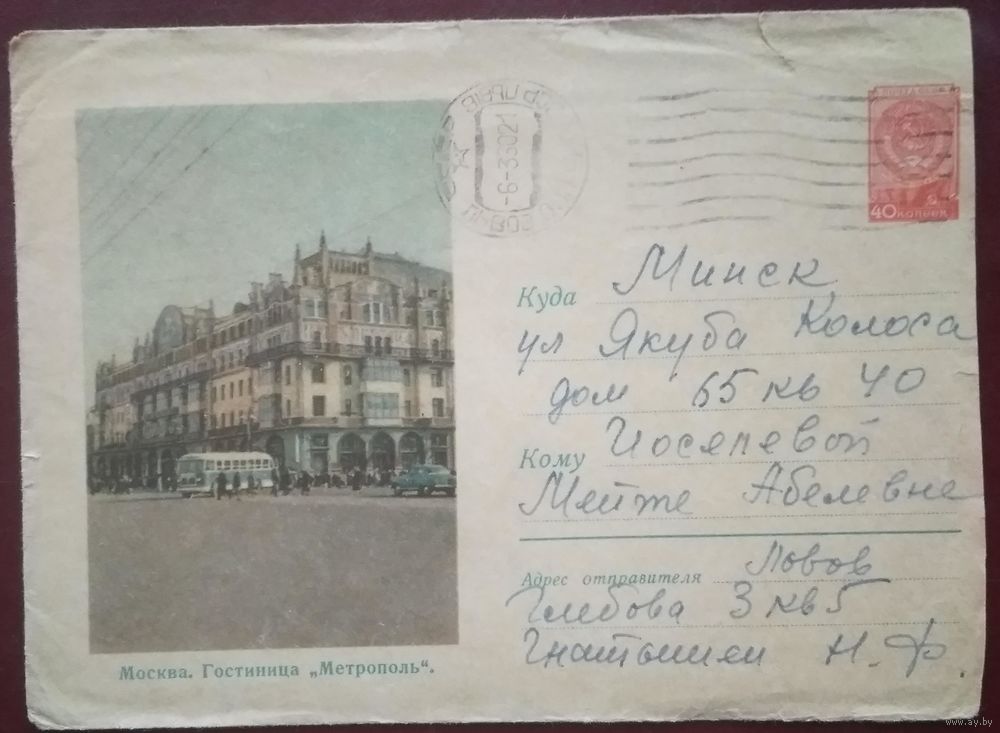 ПОЧТА СССР
40 копеек
-6-3 60 21
Куда Минск
ул Якуба Колоса
дом 65 кв 40
Кому Иоселевой
Мейте Абелевне
Адрес отправителя Львов
Глебова 3 кв 5
Н. Ф.
Москва. Гостиница „Метрополь“.
www.ay.by